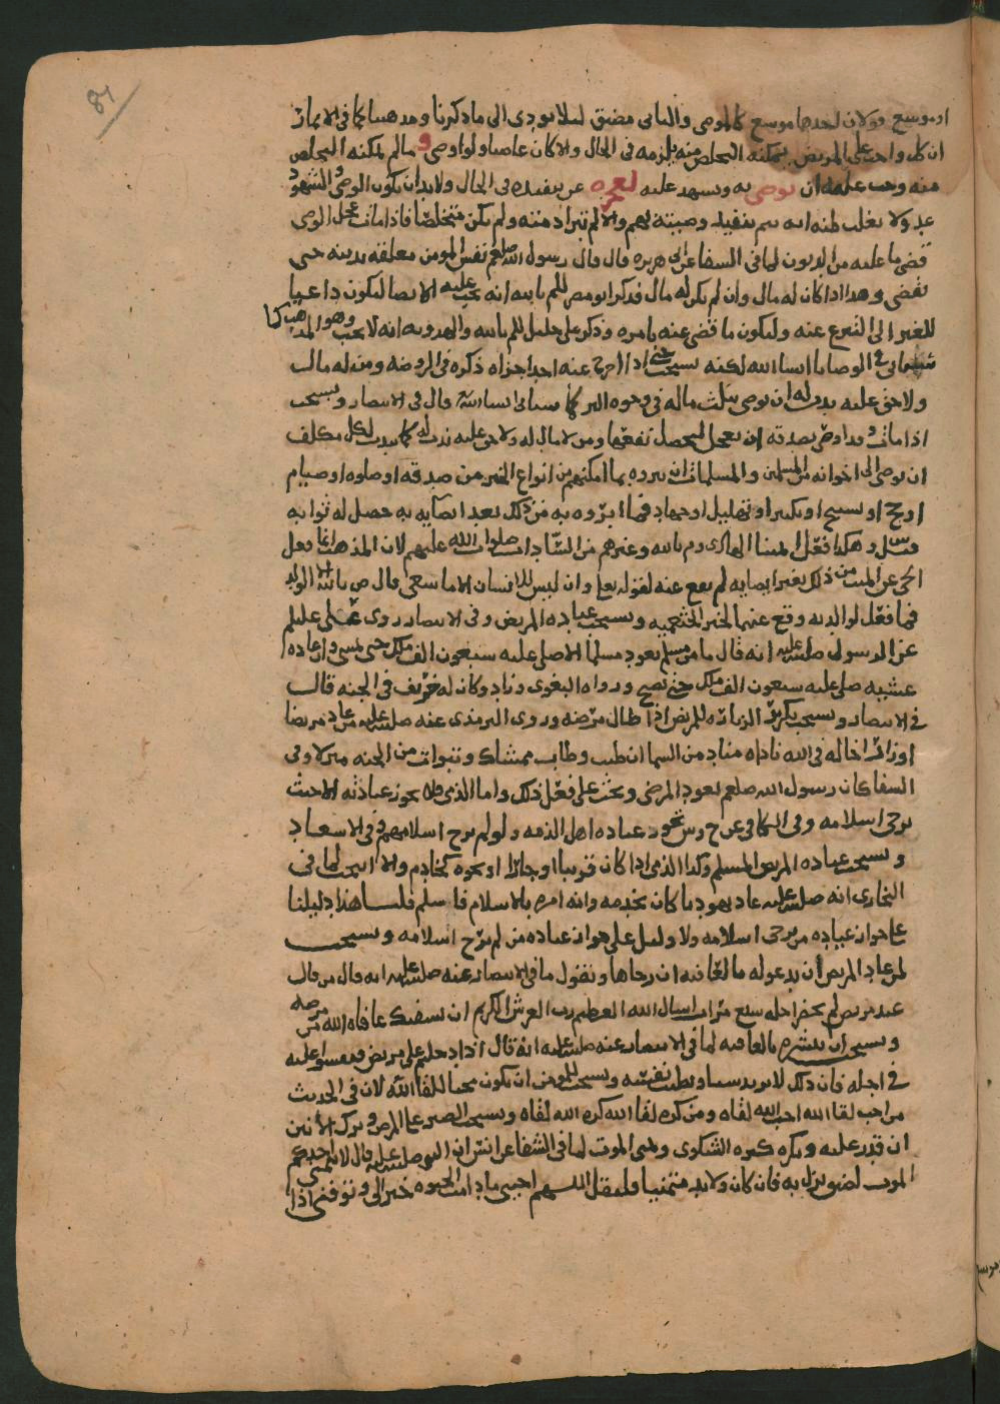 او موسع قولان احدها موسع كالموصى والثانى مضيق لئلا يودى الى ماذكرنا ومذهبنا كما فى الاثمار
ان كل واجب على المريض يمكنه التخلص منه يلزمه فى الحال والا كان عاصيا ولو اوصى و مالم يمكنه التخلص
منه وجب عليه ان يوصى به ويشهد عليه لعجزه عن تنفيذه فى الحال ولابد ان يكون الوصى والشهود
عدولا يغلب ظنه انه يتم تنفيذ وصيته بهم والا لم تبرا ذمته ولم يكن متخلصا فاذا مات عجل الوصى
قضى ما عليه من الديون لما فى الشفا عن ابى هريره قال قال رسول الله صلعم نفس المومن معلقه بدينه حتى
يقضى وهذا اذا كان له مال وان لم يكن له مال فذكر ابو مضر للم بالله انه يجب عليه الايصا ليكون داعيا
للغير الى التبرع عنه وليكون ما قضى عنه بامره وذكر على خليل للم بالله والهدويه انه لا يجب وهو المذهب كما
سياتى فى الوصايا ان شا الله لكنه يستحب حتى اذا اخرج عنه احد اجزاه ذكره فى الروضه ومن له مال
ولا حق عليه يندب له ان يوصى بثلث ماله فى وجوه البر كما سياتى ان شا الله قال فى الانتصار ويستحب
اذا مات وقد اوصى بصدقه ان يعجل ليحصل نفعها ومن لا مال له ولا حق عليه ندب له كما يندب لكل مكلف
ان يوصى الى اخوانه من المسلمين والمسلمات ان يبروه بما امكنهم من انواع الخير من صدقه او صلوه او صيام
او حج او تسبيح او تكبير او تهليل او جهاد فما ابروه به من ذلك بعد ايصايه به حصل له ثوابه
وهكذا فعل ايمتنا الهادى وم بالله وغيرهم من السادات صلوات الله عليهم لان المذهب انما فعل
الحى عن الميت من ذلك بغير ايصايه لم يقع عنه لقوله تعا وان ليس للانسان الا ما سعى قال ص بالله الا الولد
فما فعل لوالديه وقع عنهما لخبر الخثعميه ويستحب عياده المريض وفى الانتصار روى على علىلم
عن الرسول صلى الله عليه انه قال ما من مسلم يعود مسلما الا صلى عليه سبعون الف ملك حتى يمسى وان عاده
عشيه صلى عليه سبعون الف ملك حتى يصبح ورواه البغوى وزاد وكان له خريف فى الجنه قال
فى الانتصار ويستحب تكرير الزياره للمريض اذا طال مرضه وروى الترمذى عنه صلى الله عليه من عاد مريضا
او زار اخا له فى الله ناداه مناد من السما ان طبت وطاب ممشاك وتبوات من الجنه منزلا وفى
الشفا كان رسول الله صلعم يعود المرضى ويحث على فعل ذلك واما الذمى فلا يجوز عيادته الا حيث
يرجى اسلامه وفى الكافى عن ح وش تجوز عياده اهل الذمه ولو لم يرج اسلامهم وفى الاسعاد
ويستحب عياده المريض المسلم وكذا الذمى اذا كان قريبا او جارا او نحوه كخادم والا ابيحت لما فى
البخارى انه صلى الله عليه عاد يهوديا كان يخدمه وانه امره بالاسلام فاسلم قلنا هذا دليلنا
على جواز عياده من يرجى اسلامه ولا دليل على جواز عياده من لم يرج اسلامه ويستحب
لمن عاد المريض ان يدعو له بالعافيه ان رجاها ويقول ما فى الانتصار عنه صلى الله عليه انه قال من قال
عند مريض لم يحضر اجله سبع مرات اسال الله العظيم رب العرش الكريم ان يشفيك عافاه الله من مرضه
ويستحب ان يبشره بالعافيه لما فى الانتصار عنه صلى الله عليه انه قال اذا دخلتم على مريض فنفسوا عليه
فى اجله فان ذلك لا يرد شيا ويطيب نفسه ويستحب للمومن ان يكون محبا للقا الله لان فى الحديث
من احب لقا الله احب الله لقاه ومن كره لقا الله كره الله لقاه ويستحب الصبر على المرض وترك الانين
ان قدر عليه ويكره كثره الشكوى وتمنى الموت لما فى الشفا عن انس ان النبى صلى الله عليه قال لا يتمنى احدكم
الموت لضر نزل به فان كان ولابد متمنيا فليقل اللهم احينى ما دامت الحيوه خيرا لى وتوفنى اذا